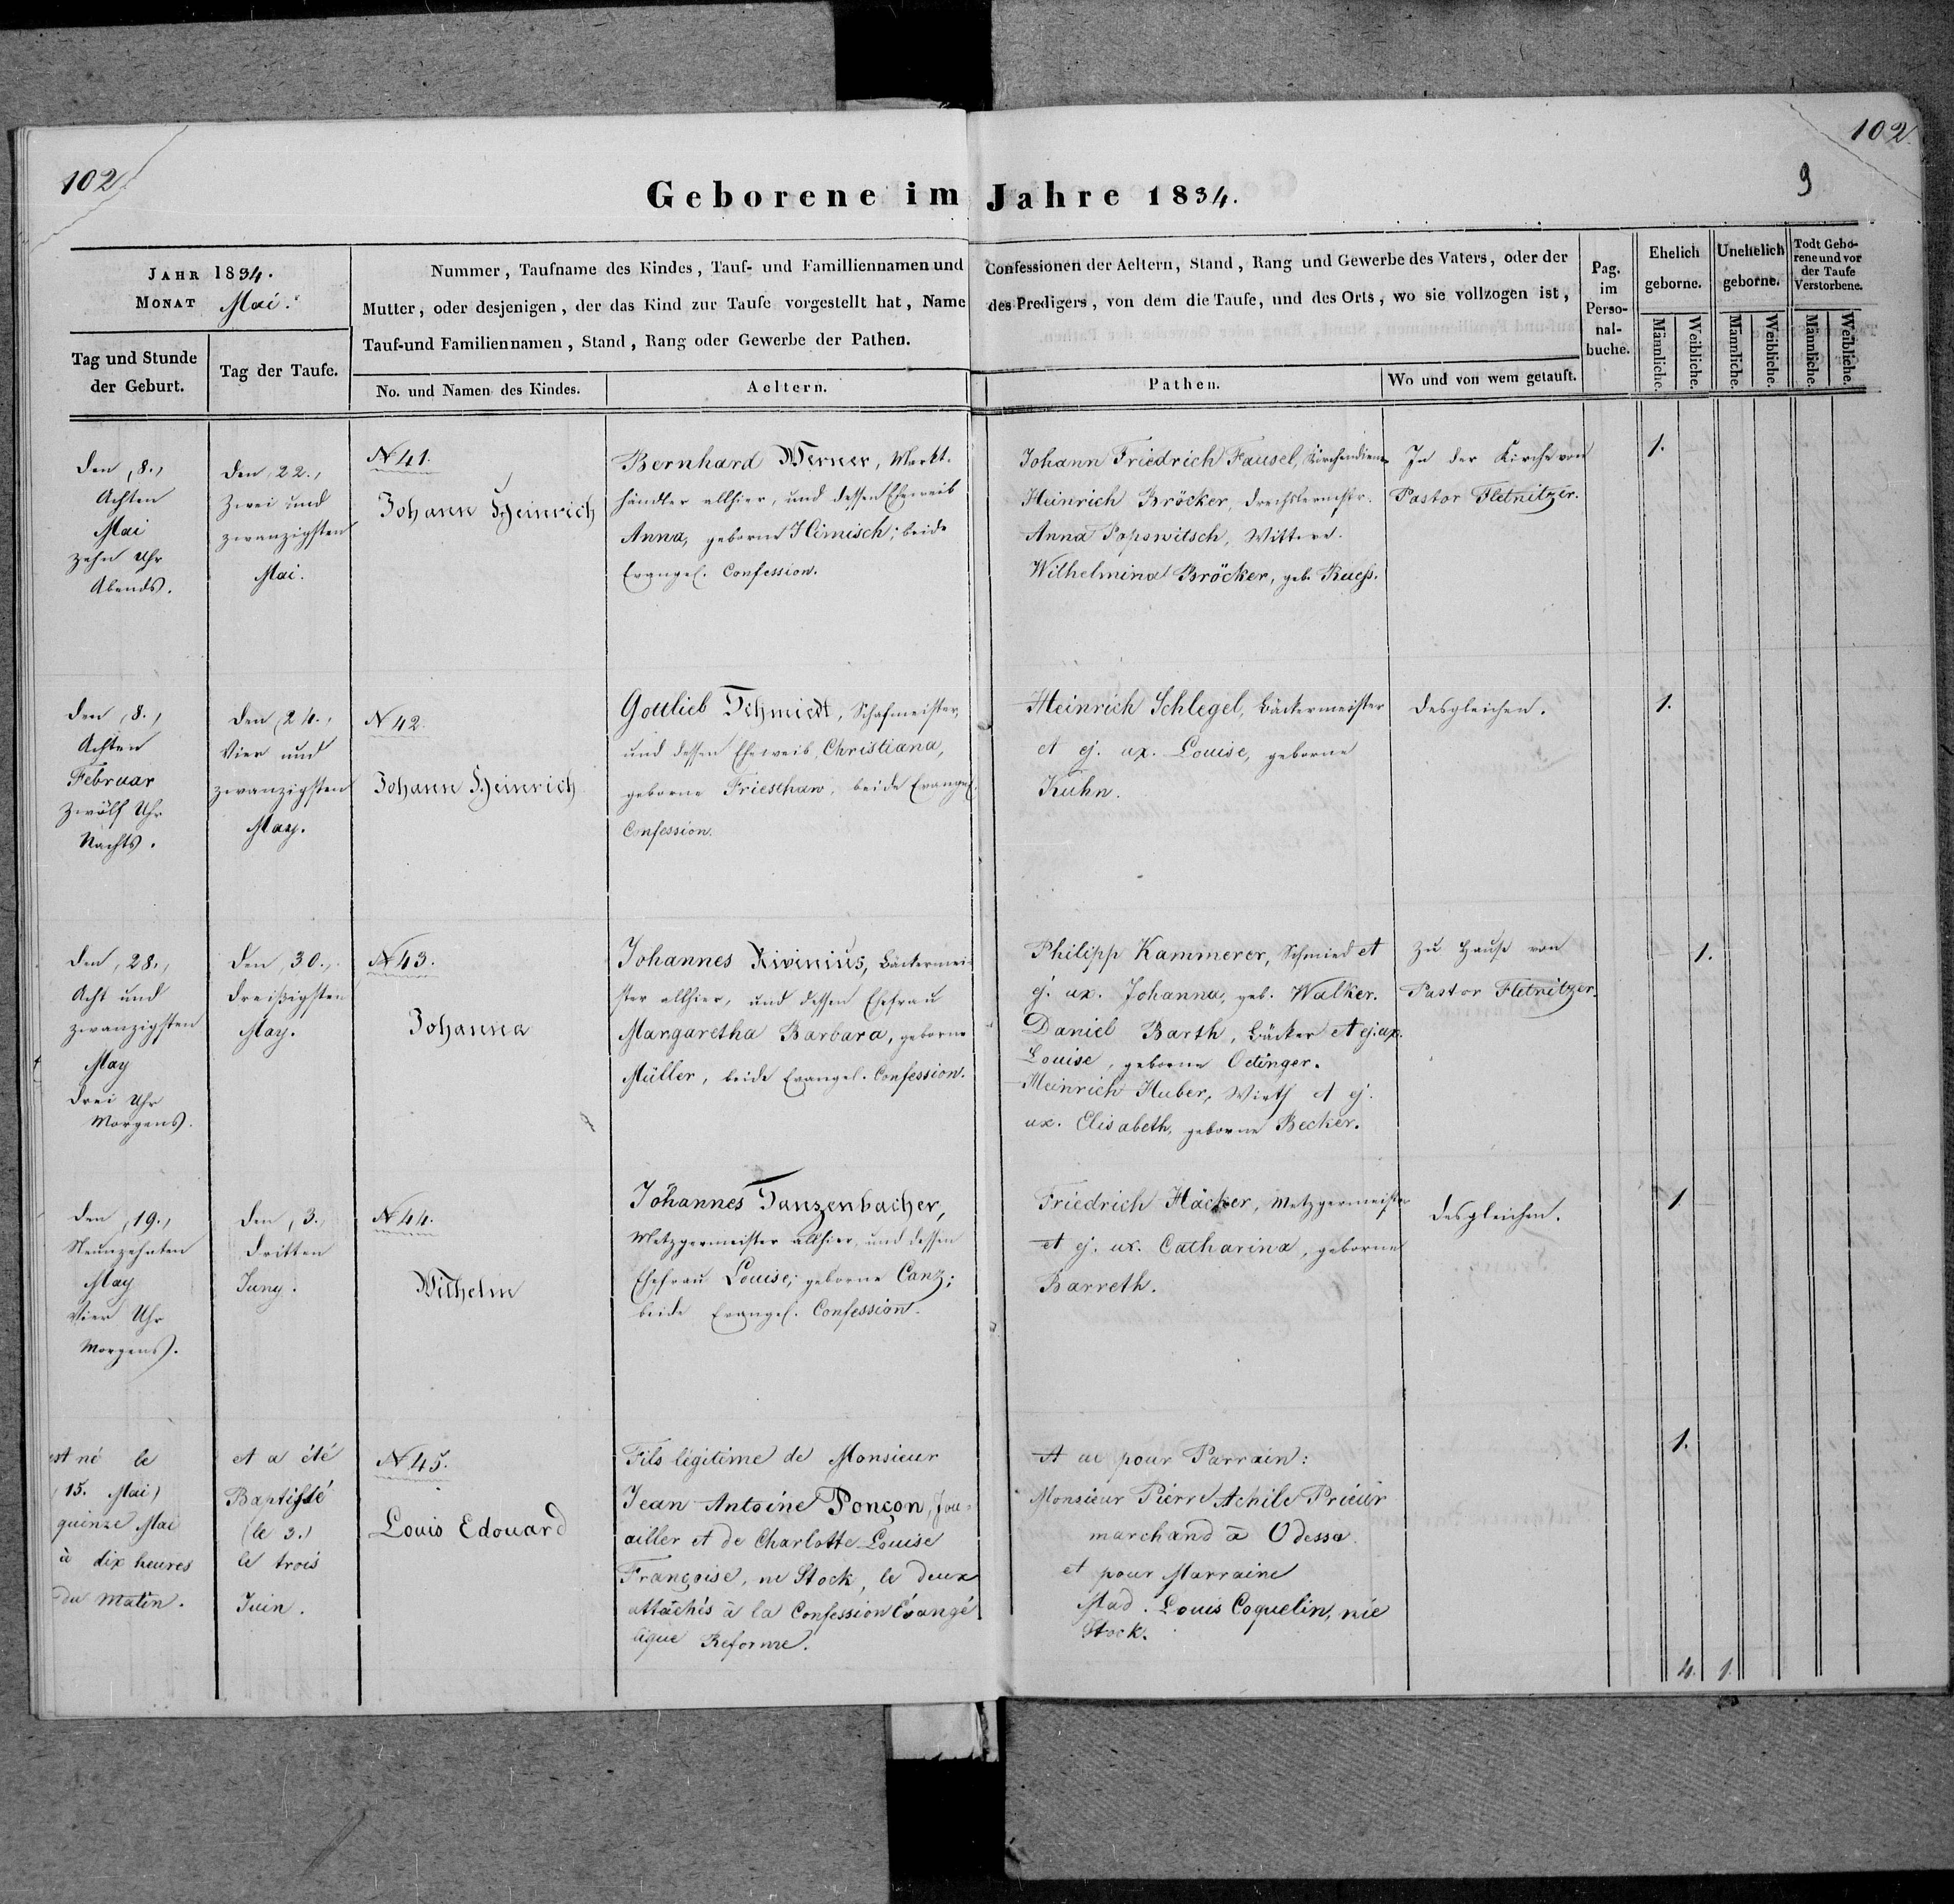 102.
102.
9
Geborene im Jahre 1834.
JAHR 1834.
MONAT Mai.
Nummer, Taufname des Kindes, Tauf- und Familliennamen und Confessionen der Aeltern, Stand, Rang und Gewerbe des Vaters, oder der
Mutter, oder desjenigen, der das Kind zur Taufe vorgestellt hat, Name des Predigers, von dem die Taufe, und des Orts, wo sie vollzogen ist,
Tauf-und Familiennamen, Stand, Rang oder Gewerbe der Pathen.
Tag und Stunde
der Geburt.
Tag der Taufe.
No. und Namen des Kindes.
Aeltern.
Pathen.
Wo und von wem getauft.
Pag.
im
Perso-
nal-
buche.
Ehelich
geborne.
Unehelich
geborne.
Todt Gebo-
rene und vor
der Taufe
Verstorbene.
Männliche.
Weibliche.
Männliche.
Weibliche.
Männliche.
Weibliche.
Den (8.)
Achten
Mai
zehn Uhr
Abends.
Den (22.)
Zwei und
zwanzigsten
Mai.
N 41.
Johann Heinrich
Bernhard Werner, Markt-
händler allhier, und dessen Eheweib
Anna, geborne Himisch; beide
Evangel. Confession.
Johann Friedrich Fausel, Kirchendiener
Heinrich Bröcker, Drechslermstr.
Anna Popowitsch, Wittwe.
Wilhelmina Bröcker, geb. Ruess.
In der Kirche von
Pastor Fletnitzer.
1.
Den (8.)
Achten
Februar
Zwölf Uhr
Nachts.
Den (24.)
Vier und
zwanzigsten
May.
N 42.
Johann Heinrich
Gottlieb Schmidt, Schafmeister,
und dessen Eheweib, Christiana,
geborne Friesthaw, beide Evangel.
Confession.
Heinrich Schlegel, Bäckermeister
et ej. ux. Louise, geborne
Kuhn.
Desgleichen.
1.
Den (28.)
Acht und
zwanzigsten
May
Drei Uhr
Morgens.
Den (30.)
Dreißigsten
May.
N 43.
Johanna
Johannes Rivinius, Bäckermei-
ster allhier, und dessen Ehefrau
Margaretha Barbara, geborne
Müller, beide Evangel. Confession.
Philipp Kammerer, Schmied et
ej. ux. Johanna, geb. Walker.
Daniel Barth, Bäcker et ej. ux.
Louise, geborne Oetinger.
Heinrich Huber, Wirth et ej.
ux. Elisabeth, geborne Becker.
Zu Hause von
Pastor Fletnitzer.
1.
Den (19.)
Neunzehnten
May
Vier Uhr
Morgens.
Den (3.)
Dritten
Juny.
N 44.
Wilhelm
Johannes Tanzenbacher,
Metzgermeister allhier, und dessen
Ehefrau Louise, geborne Canz;
beide Evangel. Confession.
Friedrich Häcker, Metzgermeister
et ej. ux. Catharina, geborne
Barreth.
Desgleichen.
1
est né le
(15. Mai)
quinze Mai
à dix heures
du matin.
et a été
Baptisté
(le 3.)
le trois
Juin.
N 45.
Louis Edouard
Fils légitime de Monsieur
Jean Antoine Ponçon, Jou-
ailler et de Charlotte Louise
Françoise, né Stock, le deux
attachés à la Confession Évangé
lique Reforme.
A ue pour Parrain:
Monsieur Pierre Achile Prieur
marchand à Odessa.
et pour Marraine
Mad. Louis Coquelin, née
Stock.
1.
4. 1.